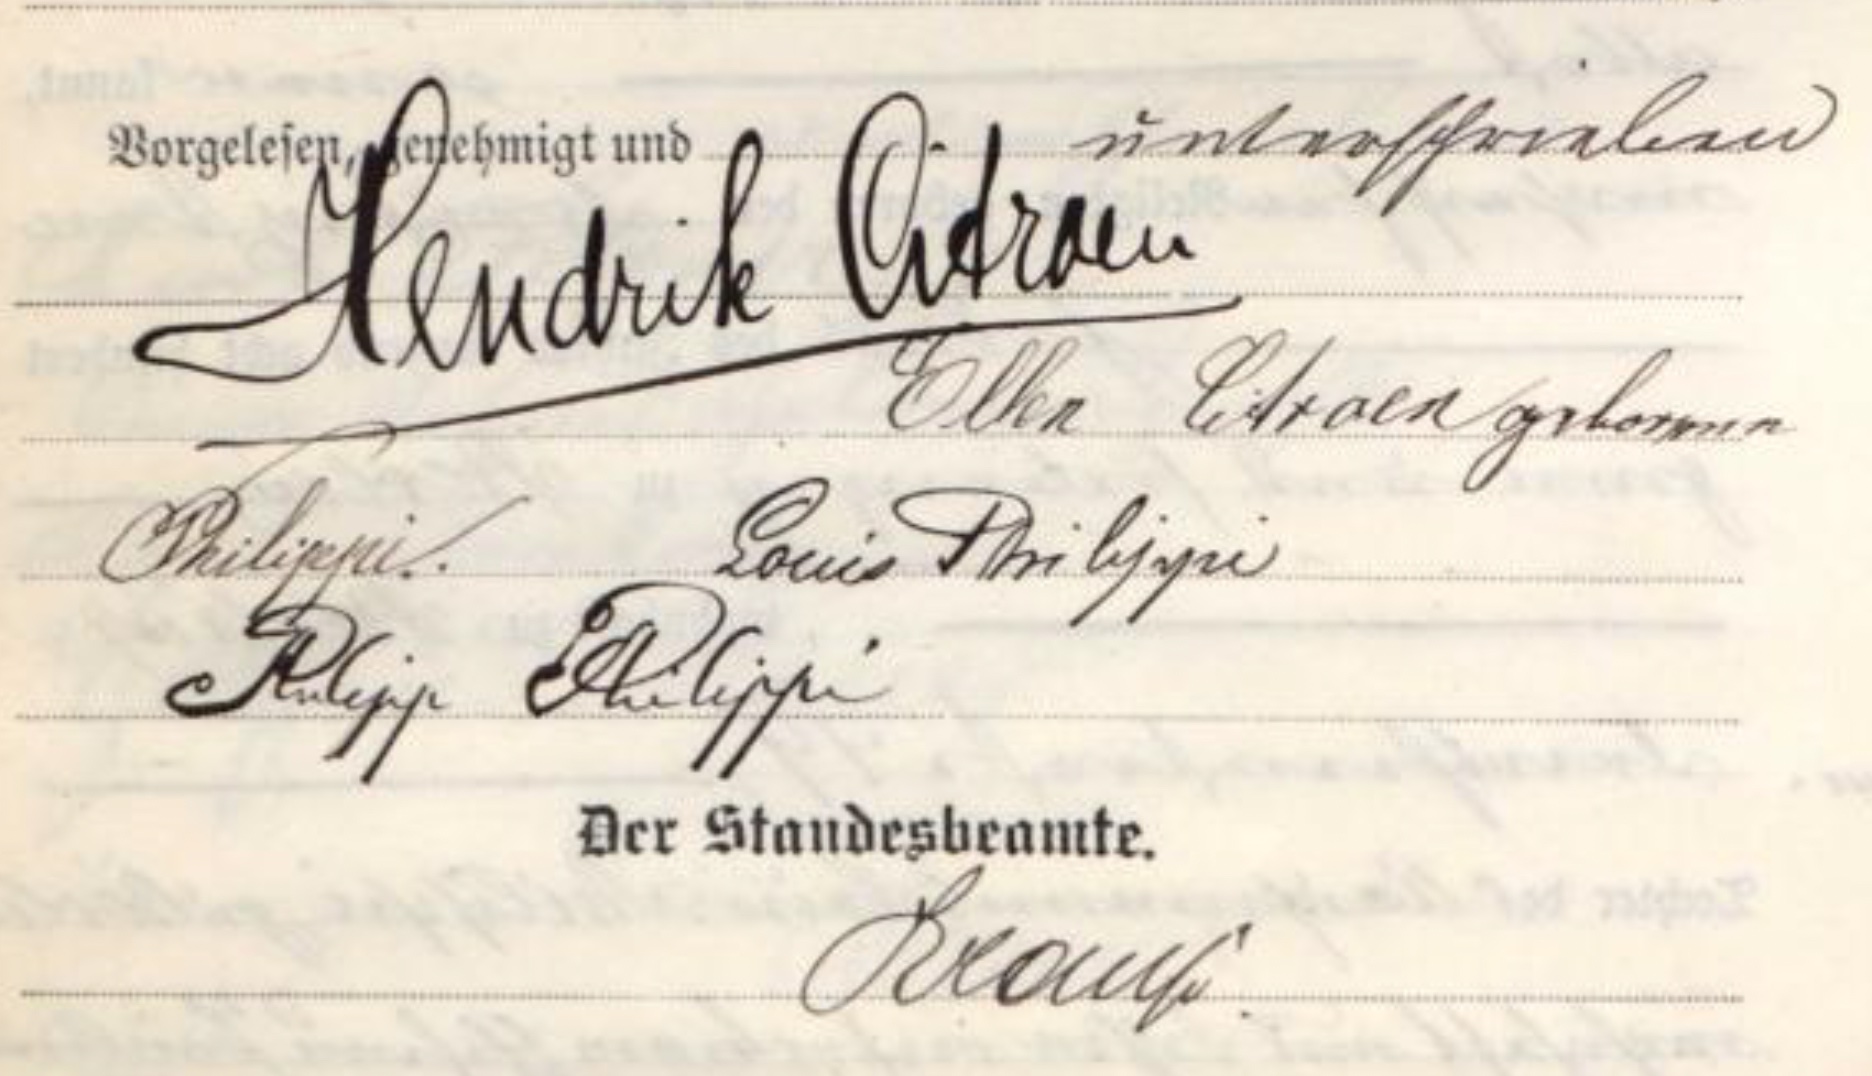 Vorgelesen, genehmigt und unterschrieben
Hendrik Citroen
Ellen Citroen geborene
Philippi.
Louis Philippi
Philipp Philippi
Der Standesbeamte.